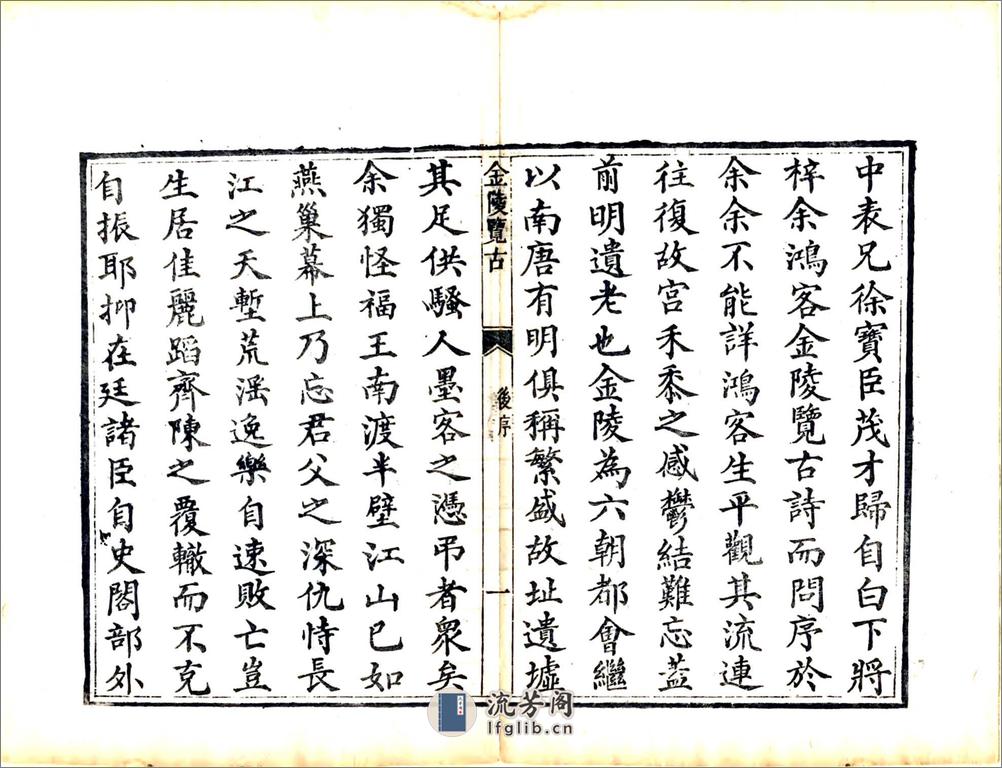 中表兄徐寶臣茂才歸自白下將
梓余鴻客金陵覽古詩而問序於
余余不能詳鴻客生平觀其流連
往復故宮禾黍之感鬱結難忘蓋
前明遺老也金陵為六朝都會繼
以南唐有明俱稱繁盛故址遺墟
金陵覽古
後序
一
其足供騷人墨客之憑弔者衆矣
余獨怪福王南渡半壁江山已如
燕巢幕上乃忘君父之深仇恃長
江之天塹荒淫逸樂自速敗亡豈
生居佳麗蹈齊陳之覆轍而不克
自振耶抑在廷諸臣自史閣部外
流芳阁
lfglib.cn